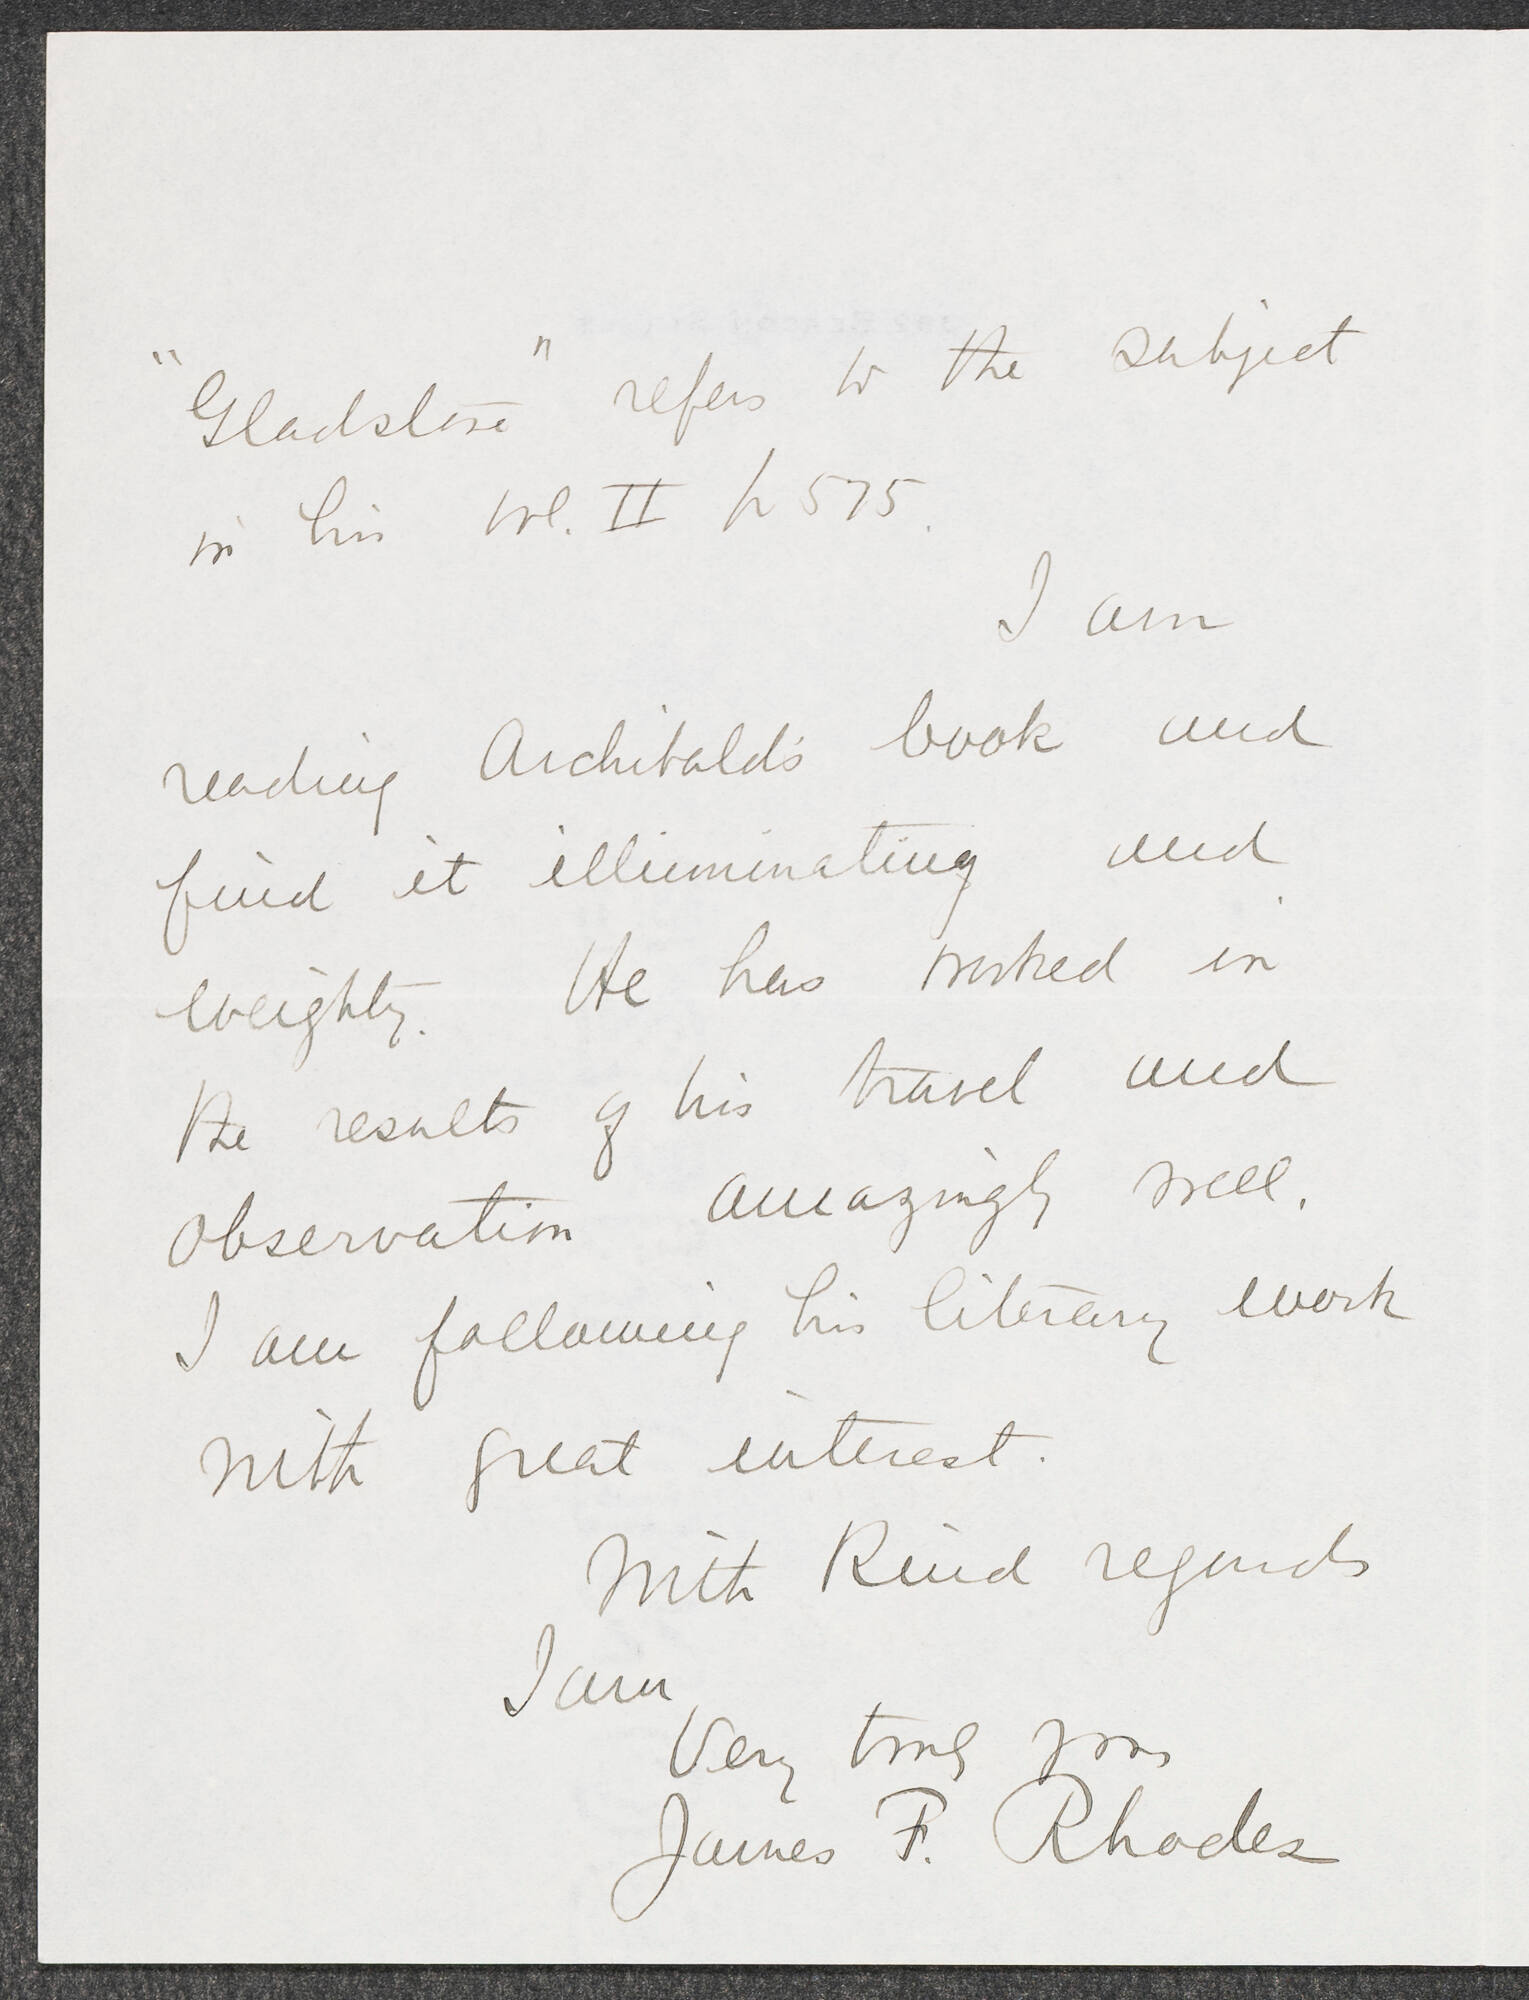 "Gladstone" refers to the subject
in his vol. II p 575.
I am
reading Archibald's book and
find it illuminating and
weighty. He has worked in
the results of his travel and
observation amazingly well.
I am following his literary work
with great interest.
With Kind regards
I am
Very truly yours
James F. Rhodes